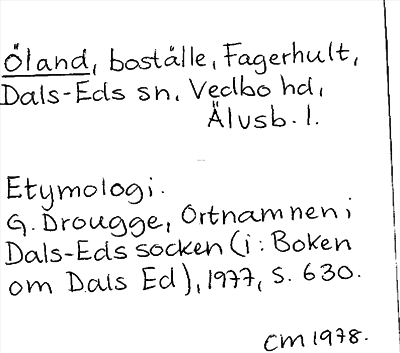 Öland, boställe, Fagerhult,
Dals-Eds sn. Vedbo hd,
Älvsb. l.
Etymologi.
G. Drougge, Ortnamnen i
Dals-Eds socken (i: Boken
om Dals Ed), 1977, s. 630.
CM 1978.